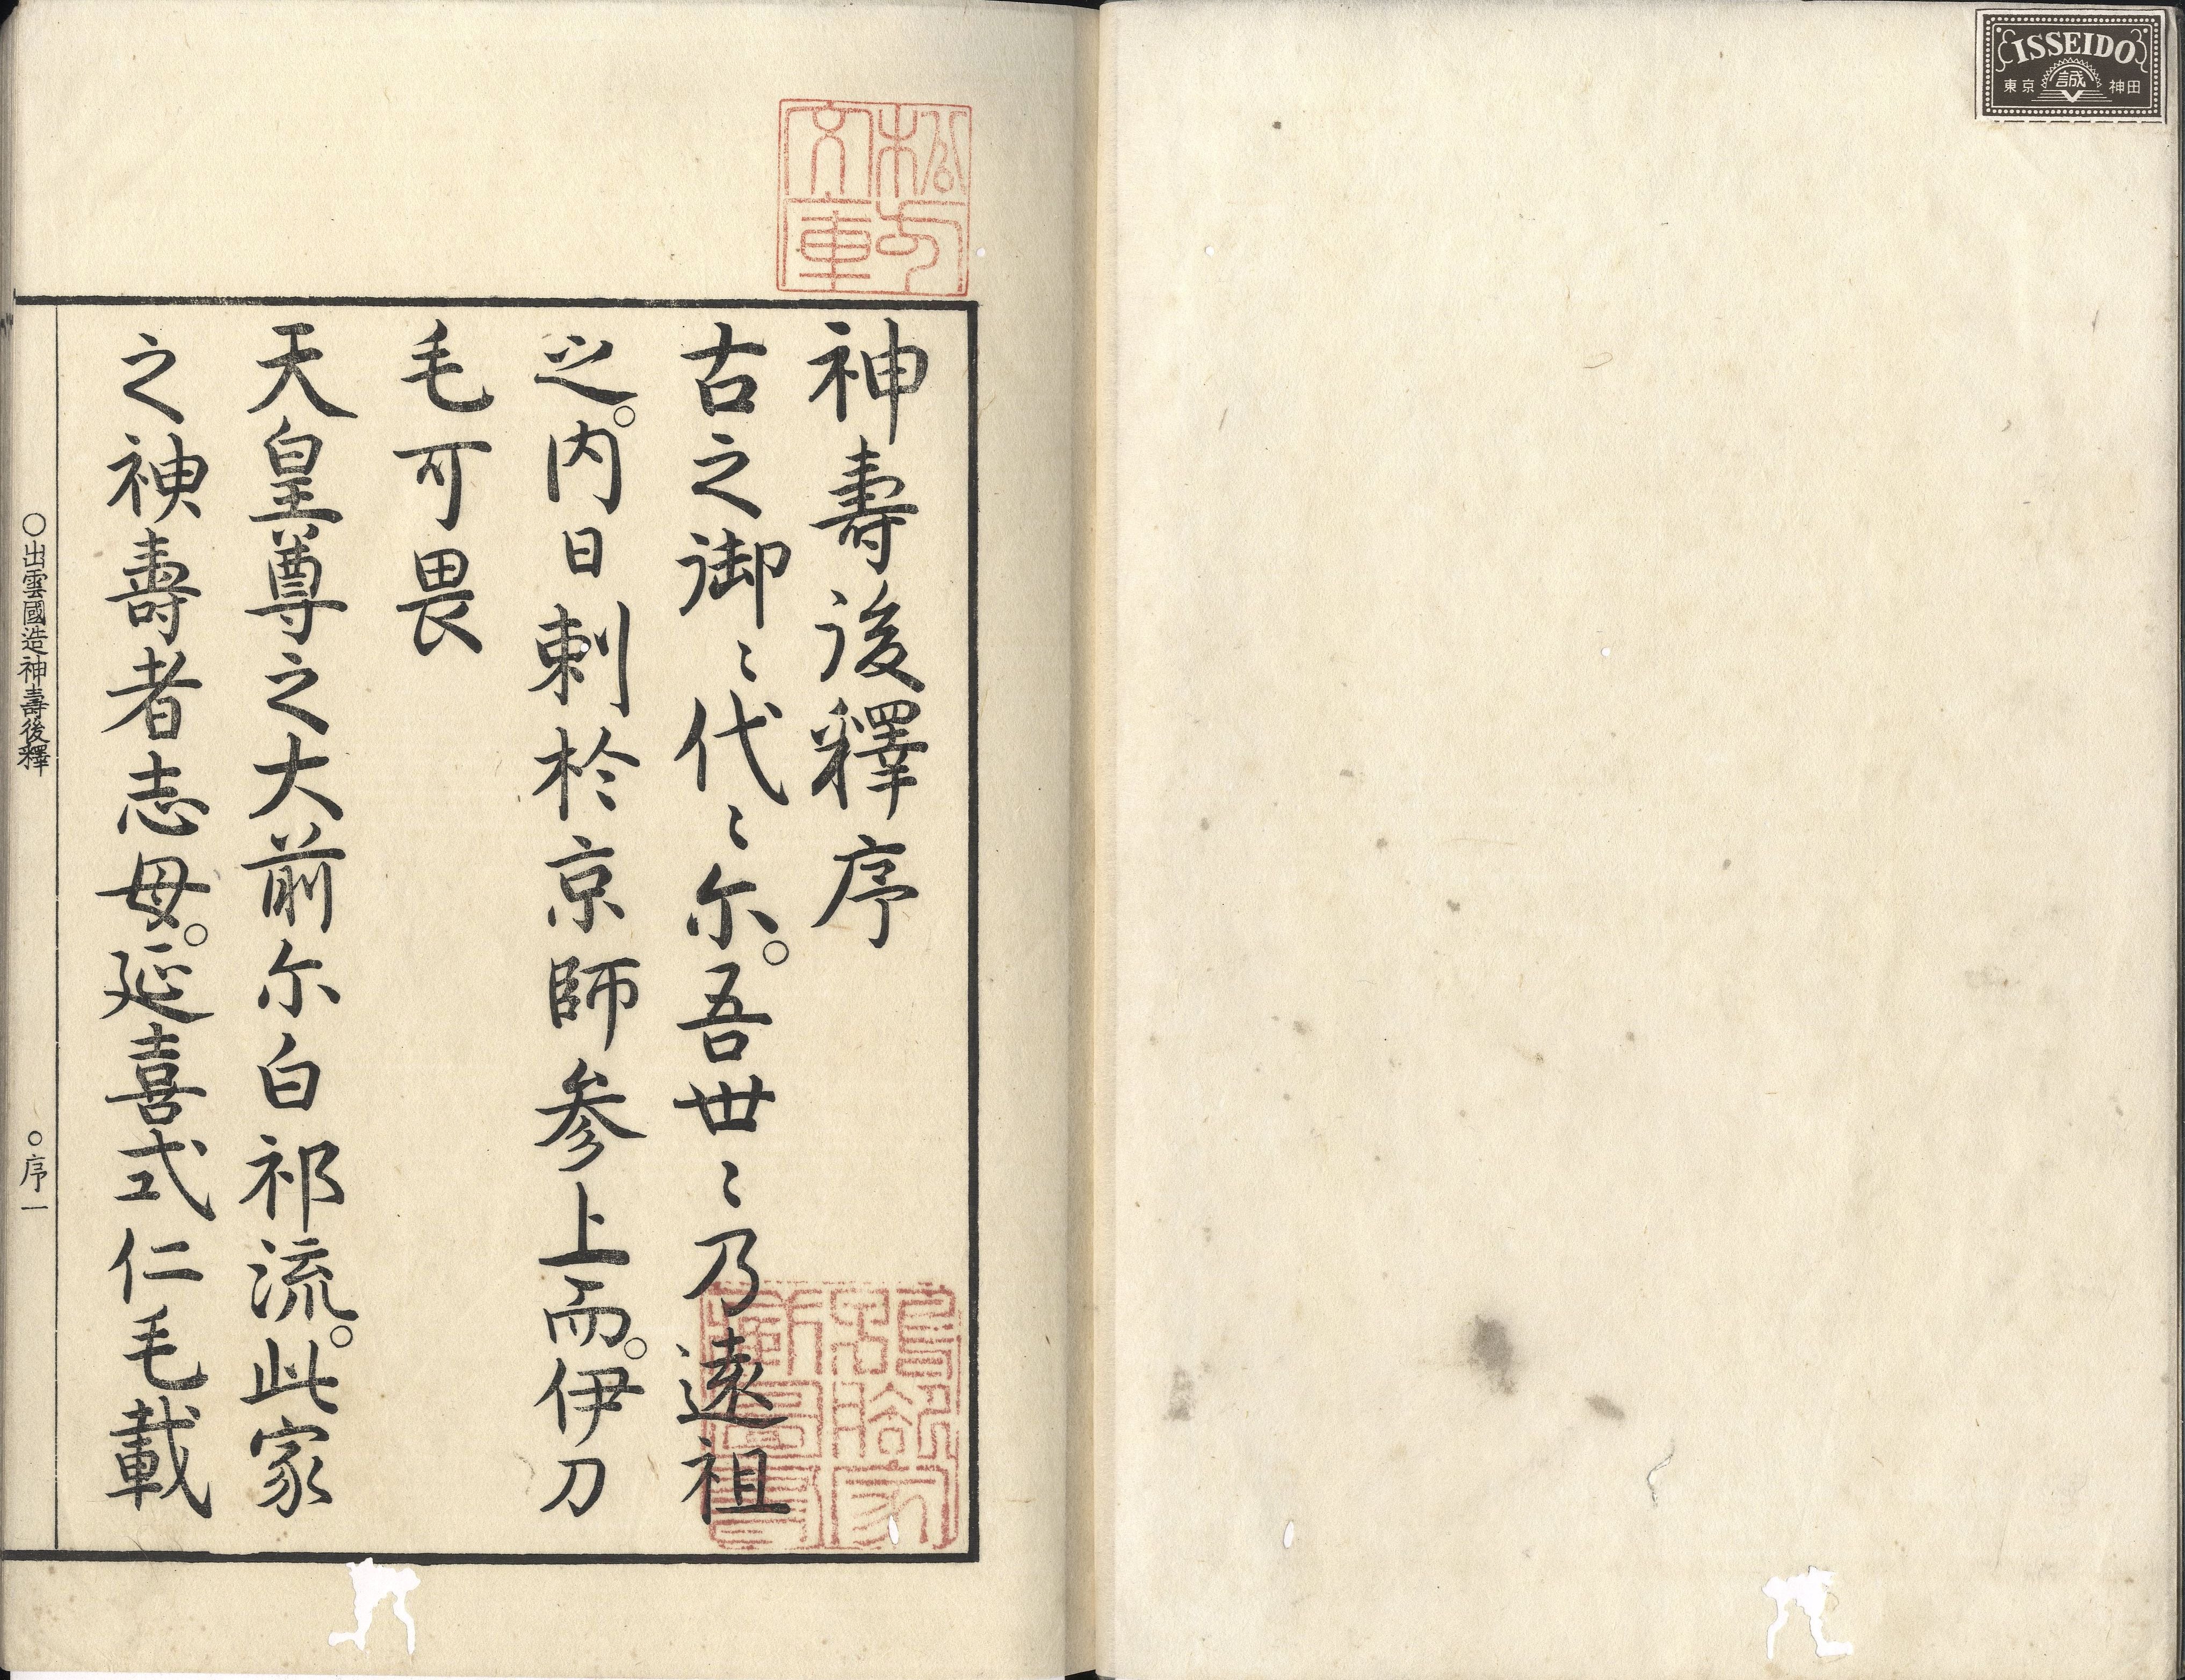 ISSEIDO
東京 誠 神田
神壽後釋序
古之御〻代〻尓。吾世〻乃遠祖
。内日刺於京師参上而。伊刀
毛可畏
天皇尊之大前尓白祁流。此家
之神壽者志母。延喜式仁毛載
○出雲國造神壽後釋 ○序一